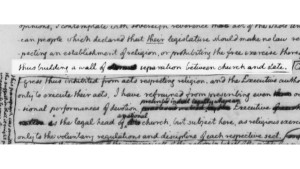 opinions, I contemplate with sovereign reverence that act of the whole
can people which declared that their legislature should make no law
pecting an establishment of religion, or prohibiting the free exercise thereof
thus building a wall of separation between church and state.
gress thus inhibited from acts respecting religion, and the Executive
only to execute their acts, I have refrained from presenting even
sional performances of devotion Executive
is the legal head of church, but subject here, as religious
only to the voluntary regulations and discipline of each respective sect.